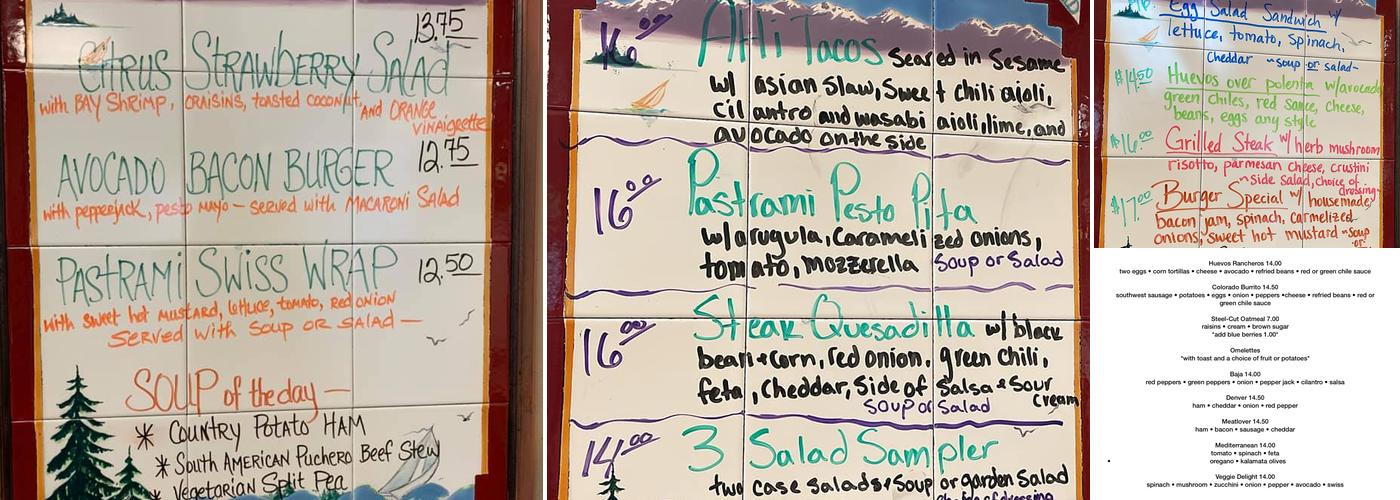 13.75
CITRUS STRAWBERRY Salad
with BAY SHRIMP, CRAISINS, toasted coconut, and ORANGE
vinaigrette
12.75
AVOCADO BACON BURGER
with pepperjack, pesto mayo - served with MACARONI Salad
12.50
PASTRAMI SWISS WRAP
with sweet hot mustard, lettuce, tomato, red onion
SERVED with SOUP OR SALAD —
SOUP of the day —
* COUNTRY POTATO HAM
* SOUTH AMERICAN Puchero Beef Stew
* Vegetarian Split Pea
16.00
AHi Tacos Seared in Sesame
w/ asian slaw, Sweet chili aioli,
cilantro and wasabi aioli, lime, and
avocado on the side
16.00
Pastrami Pesto Pita
w/ arugula, Caramelized onions,
tomato, mozzerella Soup or Salad
16.00
Steak Quesadilla w/ black
bean & corn, red onion, green chili,
feta, Cheddar, Side of Salsa & Sour
Cream
Soup or Salad
14.00
3 Salad Sampler
two case salads & soup or garden Salad
Egg Salad Sandwich w/
lettuce, tomato, spinach,
Cheddar ~soup or salad~
$14.50 Huevos over polenta w/avocado
green chiles, red sauce, cheese,
beans, eggs any style
$16.00 Grilled Steak w/ herb mushroom
risotto, parmesan cheese, crustini
~side salad, choice of
dressing~
$17.00 Burger Special w/ housemade
bacon jam, spinach, carmelized
onions, sweet hot mustard ~soup
or
Huevos Rancheros 14.00
two eggs • corn tortillas • cheese • avocado • refried beans • red or green chile sauce
Colorado Burrito 14.50
southwest sausage • potatoes • eggs • onion • peppers •cheese • refried beans • red or
green chile sauce
Steel-Cut Oatmeal 7.00
raisins • cream • brown sugar
*add blue berries 1.00*
Omelettes
*with toast and a choice of fruit or potatoes*
Baja 14.00
red peppers • green peppers • onion • pepper jack • cilantro • salsa
Denver 14.50
ham • cheddar • onion • red pepper
Meatlover 14.50
ham • bacon • sausage • cheddar
Mediterranean 14.00
tomato • spinach • feta
oregano • kalamata olives
Veggie Delight 14.00
spinach • mushroom • zucchini • onion • pepper • avocado • swiss